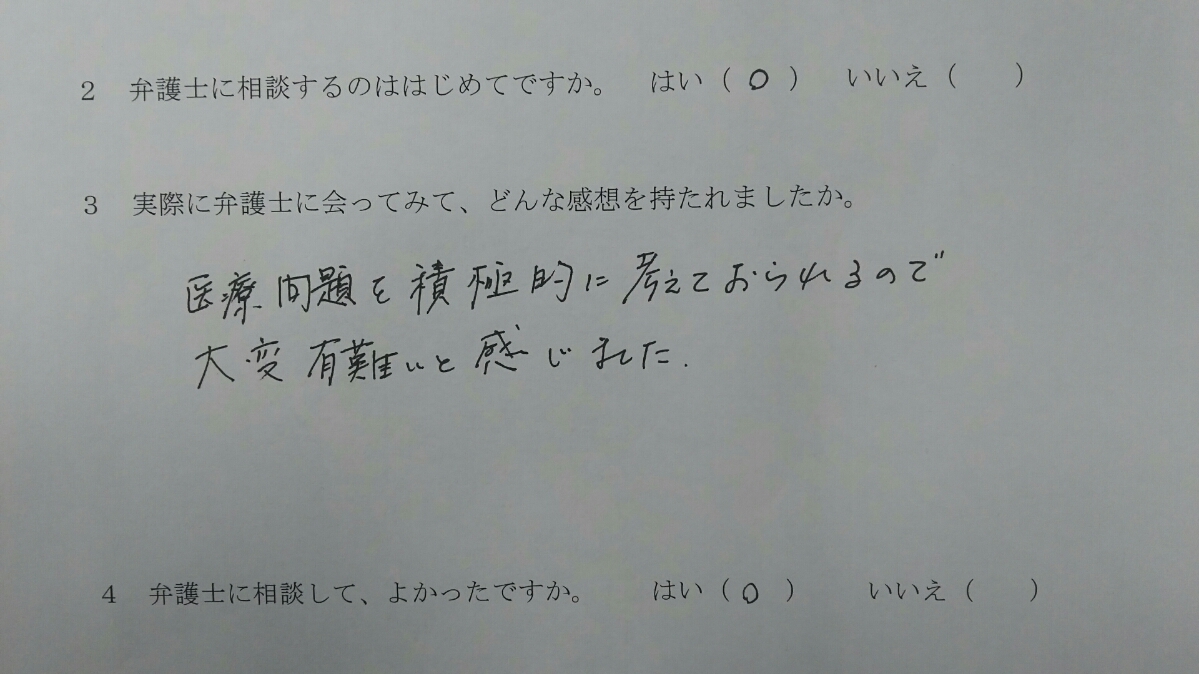 2 弁護士に相談するのははじめてですか。 はい（ ○ ） いいえ（ ）
3 実際に弁護士に会ってみて、どんな感想を持たれましたか。
医療問題を積極的に考えておられるので
大変有難いと感じました.
4 弁護士に相談して、よかったですか。 はい（ ○ ） いいえ（ ）